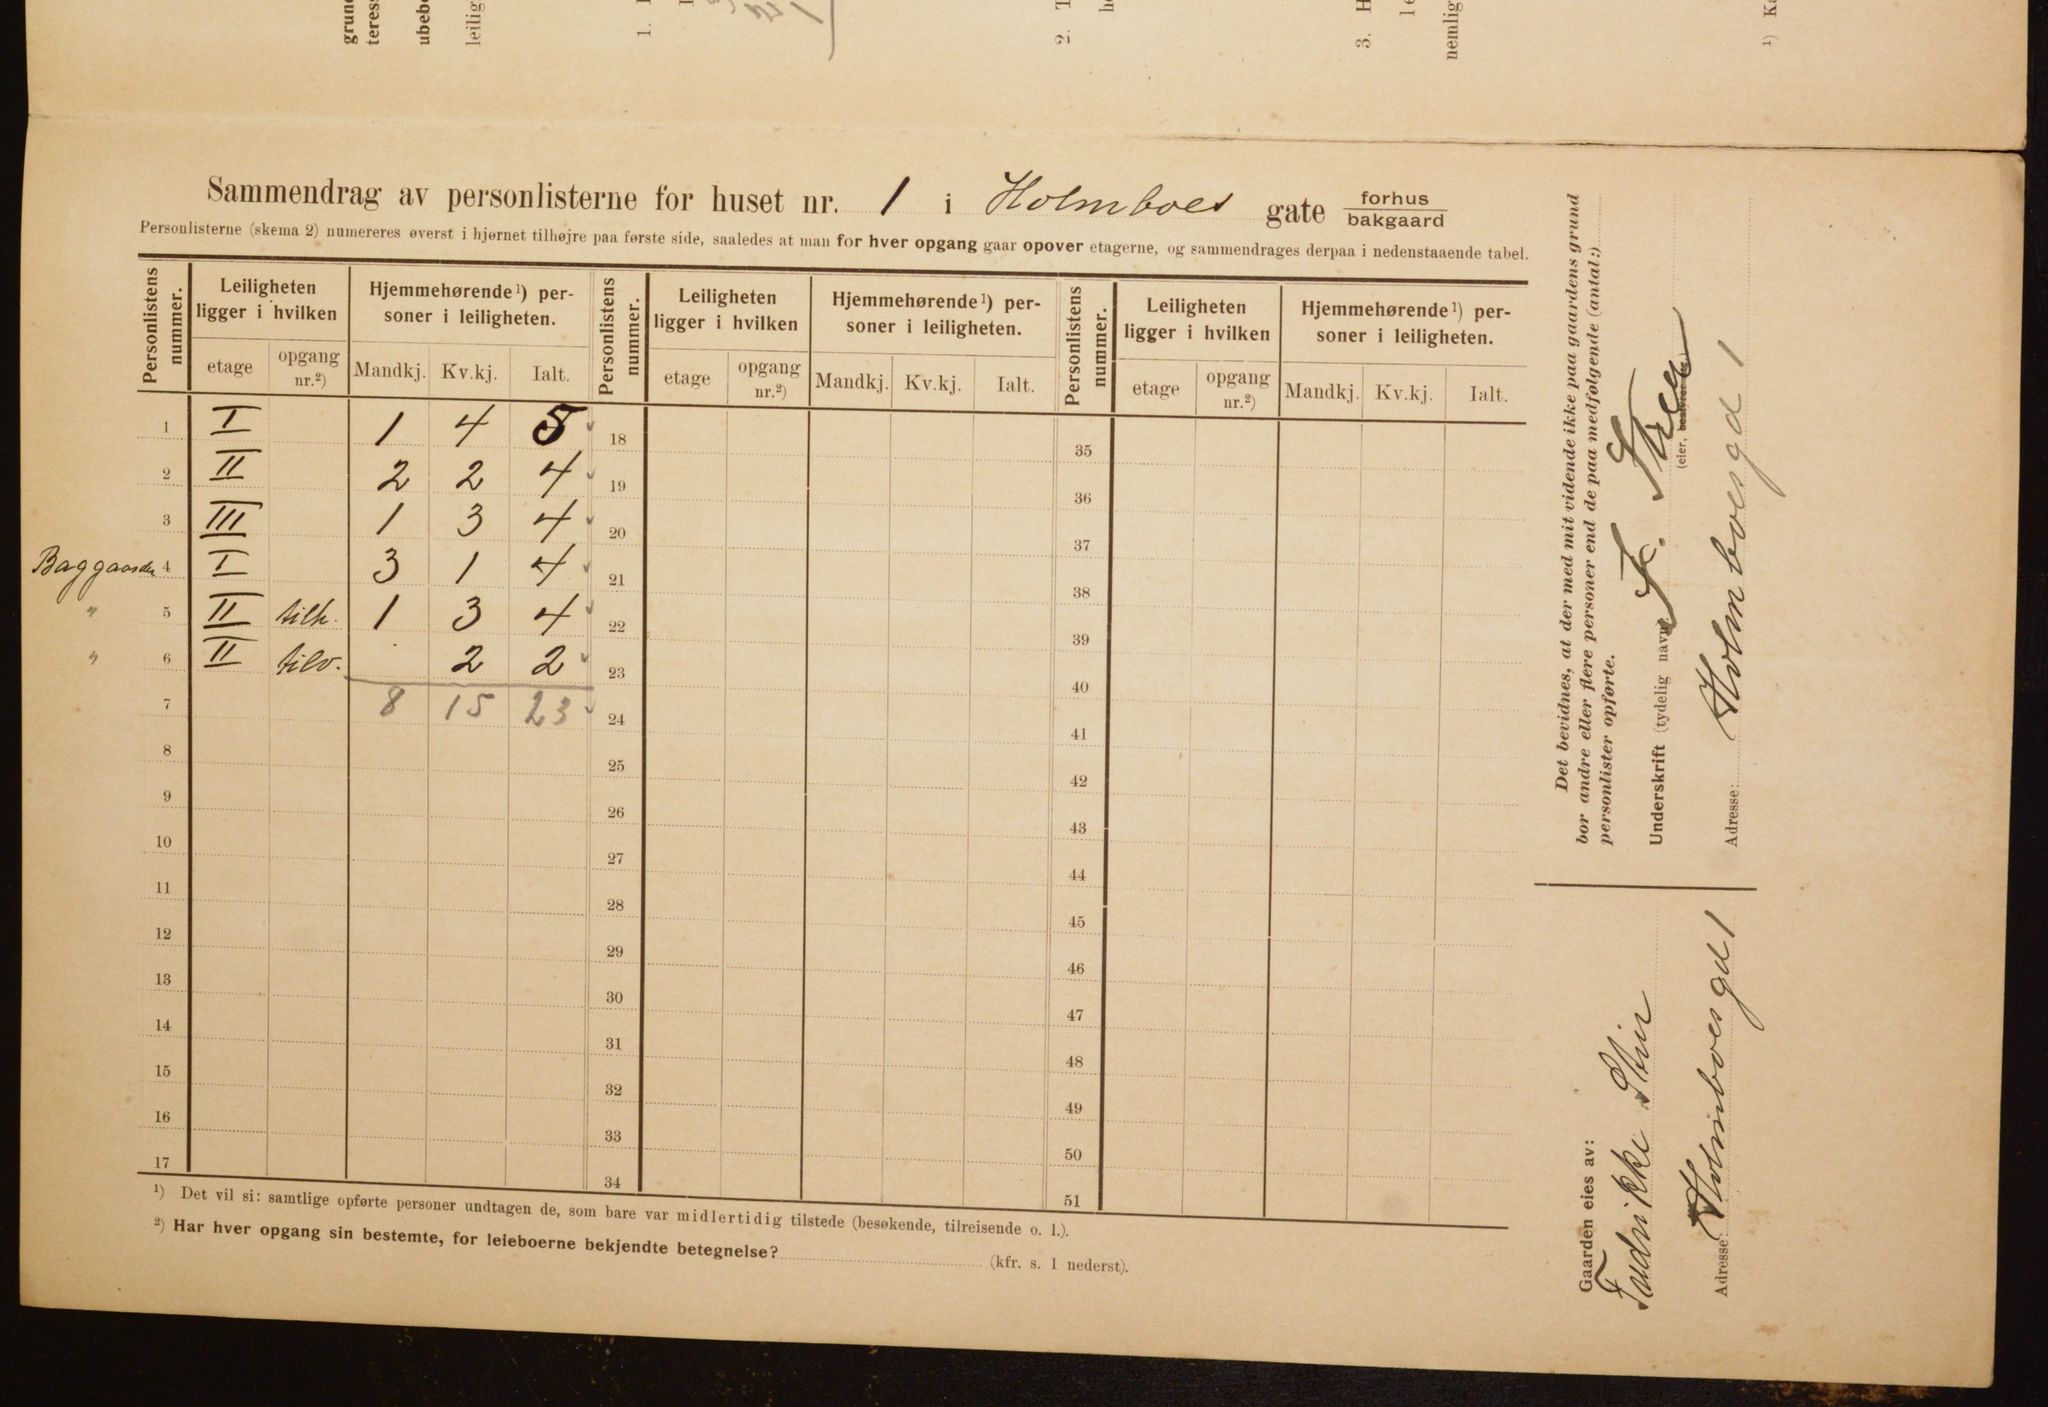 grund
teress
ubebo
leilig
1.
2. T
h
3. H
le
nemlig
¹) Ka
Sammendrag av personlisterne for huset nr. 1 i Holmboes gate forhus
bakgaard
Personlisterne (skema 2) numereres øverst i hjørnet tilhøjre paa første side, saaledes at man for hver opgang gaar opover etagerne, og sammendrages derpaa i nedenstaaende tabel.
Personlistens nummer. Leiligheten ligger i hvilken Hjemmehørende¹) personer i leiligheten. Personlistens nummer. Leiligheten ligger i hvilken Hjemmehørende¹) personer i leiligheten. Personlistens nummer. Leiligheten ligger i hvilken Hjemmehørende¹) personer i leiligheten.
etage opgang nr.²) Mandkj. Kv.kj. Ialt. etage opgang nr.²) Mandkj. Kv.kj. Ialt. etage opgang nr.²) Mandkj. Kv.kj. Ialt.
1 I 1 4 5 18 35
2 II 2 2 4 19 36
3 III 1 3 4 20 37
Baggaarden 4 I 3 1 4 21 38
" 5 II tilh. 1 3 4 22 39
" 6 II tilv. 2 2 23 40
7 8 15 23 24 41
8 25 42
9 26 43
10 27 44
11 28 45
12 29 46
13 30 47
14 31 48
15 32 49
16 33 50
17 34 51
¹) Det vil si: samtlige opførte personer undtagen de, som bare var midlertidig tilstede (besøkende, tilreisende o. l.).
²) Har hver opgang sin bestemte, for leieboerne bekjendte betegnelse? (kfr. s. 1 nederst).
Det bevidnes, at der med mit vidende ikke paa gaardens grund
bor andre eller flere personer end de paa medfølgende (antal:)
personlister opførte.
Underskrift (tydelig navn)
(eier,
Adresse: Holmboesgd 1
Gaarden eies av:
Fredrikke
Adresse: Holmboesgd 1